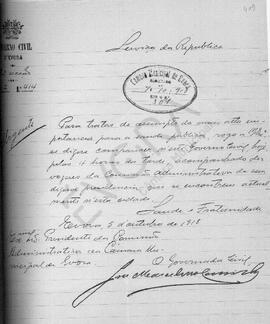 409
GOVERNO CIVIL
Serviço da Republica
Nº 414
CAMARA MUNICIPAL DE EVORA
Urgente
Para tratar de assumpto da maior alta im-
portancia para a saude publica, rogo a V. Ex.ª
se digne comparecer n'este Governo Civil hoje
pelas 4 horas da tarde, acompanhado dos
vogaes da Comissão Administrativa da sua
digna presidencia, que se encontrem actual-
mente n'esta cidade.
Saude e Fraternidade
Evora 5 d'outubro de 1918
Presidente da Comissão
Administrativa da Camara Mu-
nicipal de Evora
O Governador Civil